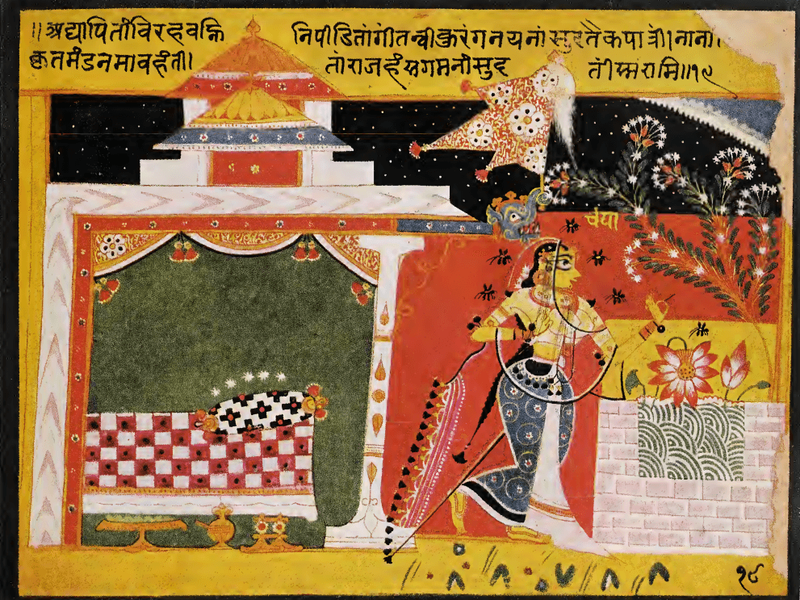 ॥अद्यापितांविरहवह्नि निपीडितांगींतन्वींकुरंगनयनांसुरतैकपात्रीं।नाना
कृतमंडनमावहंतीं। तांराजहंसगमनांसुद तींस्मरामि॥१९
चंपा
१९